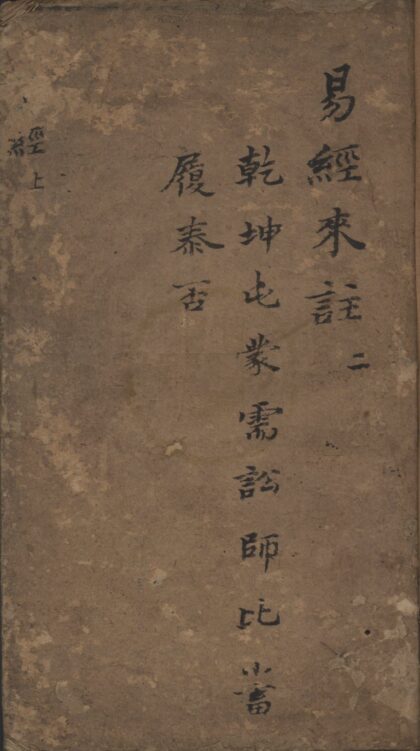 易經來註 二
乾坤屯蒙需訟師比小畜
履泰否
經上